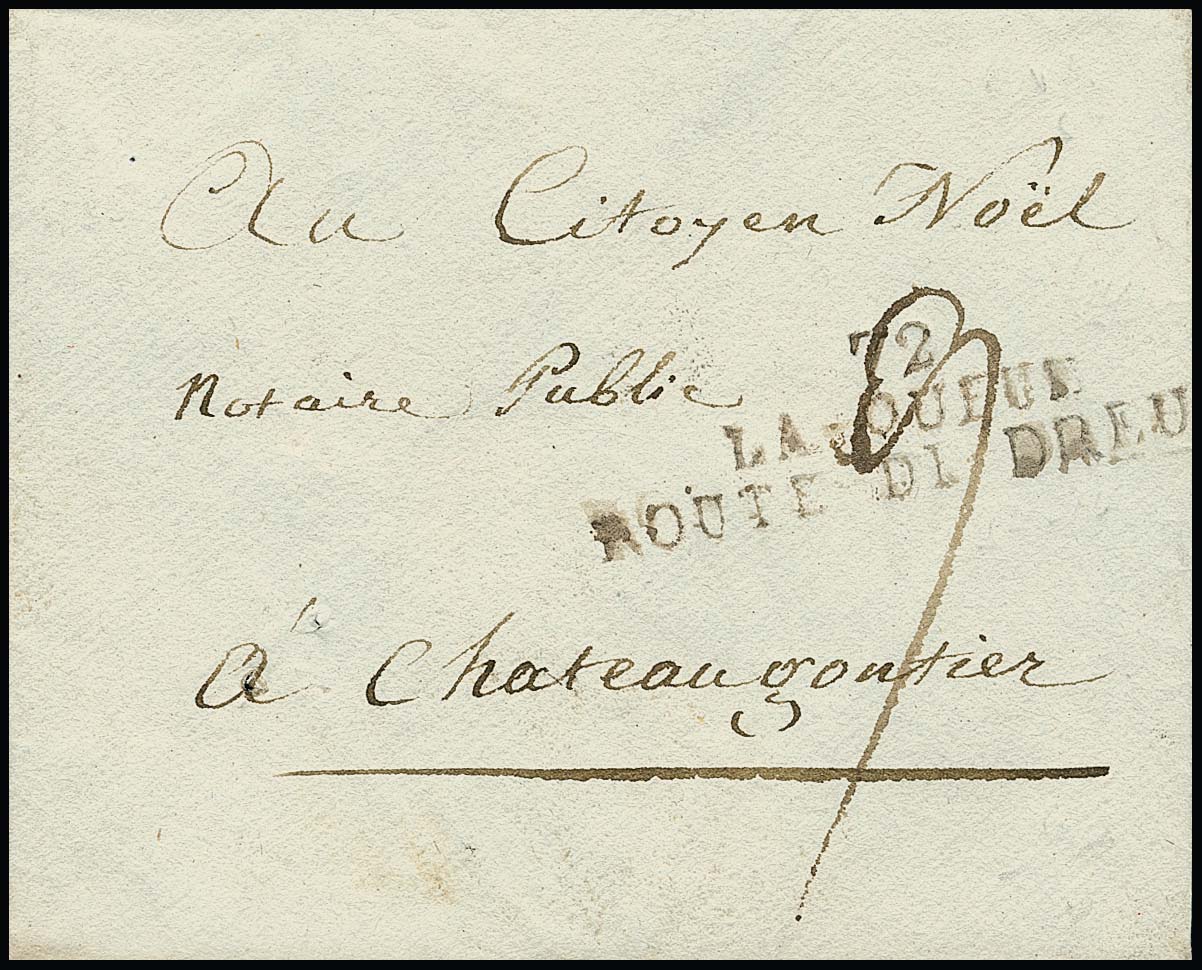 Au Citoyen Noël
72
Notaire Public
LA QUEUE
ROUTE DE DREU
à Chateaugontier